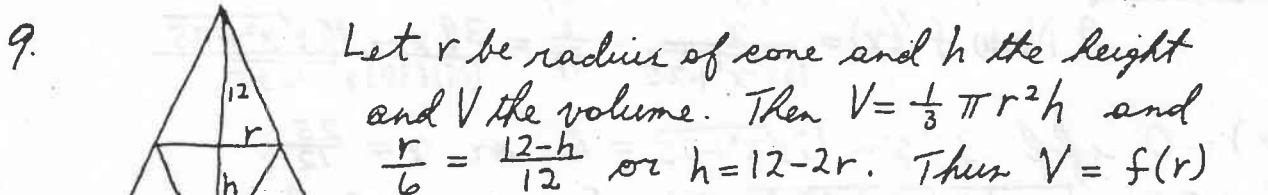 9.
12
r
h
Let r be radius of cone and h the height
and V the volume. Then V = 1/3 π r² h and
r/6 = (12-h)/12 or h = 12-2r. Thus V = f(r)